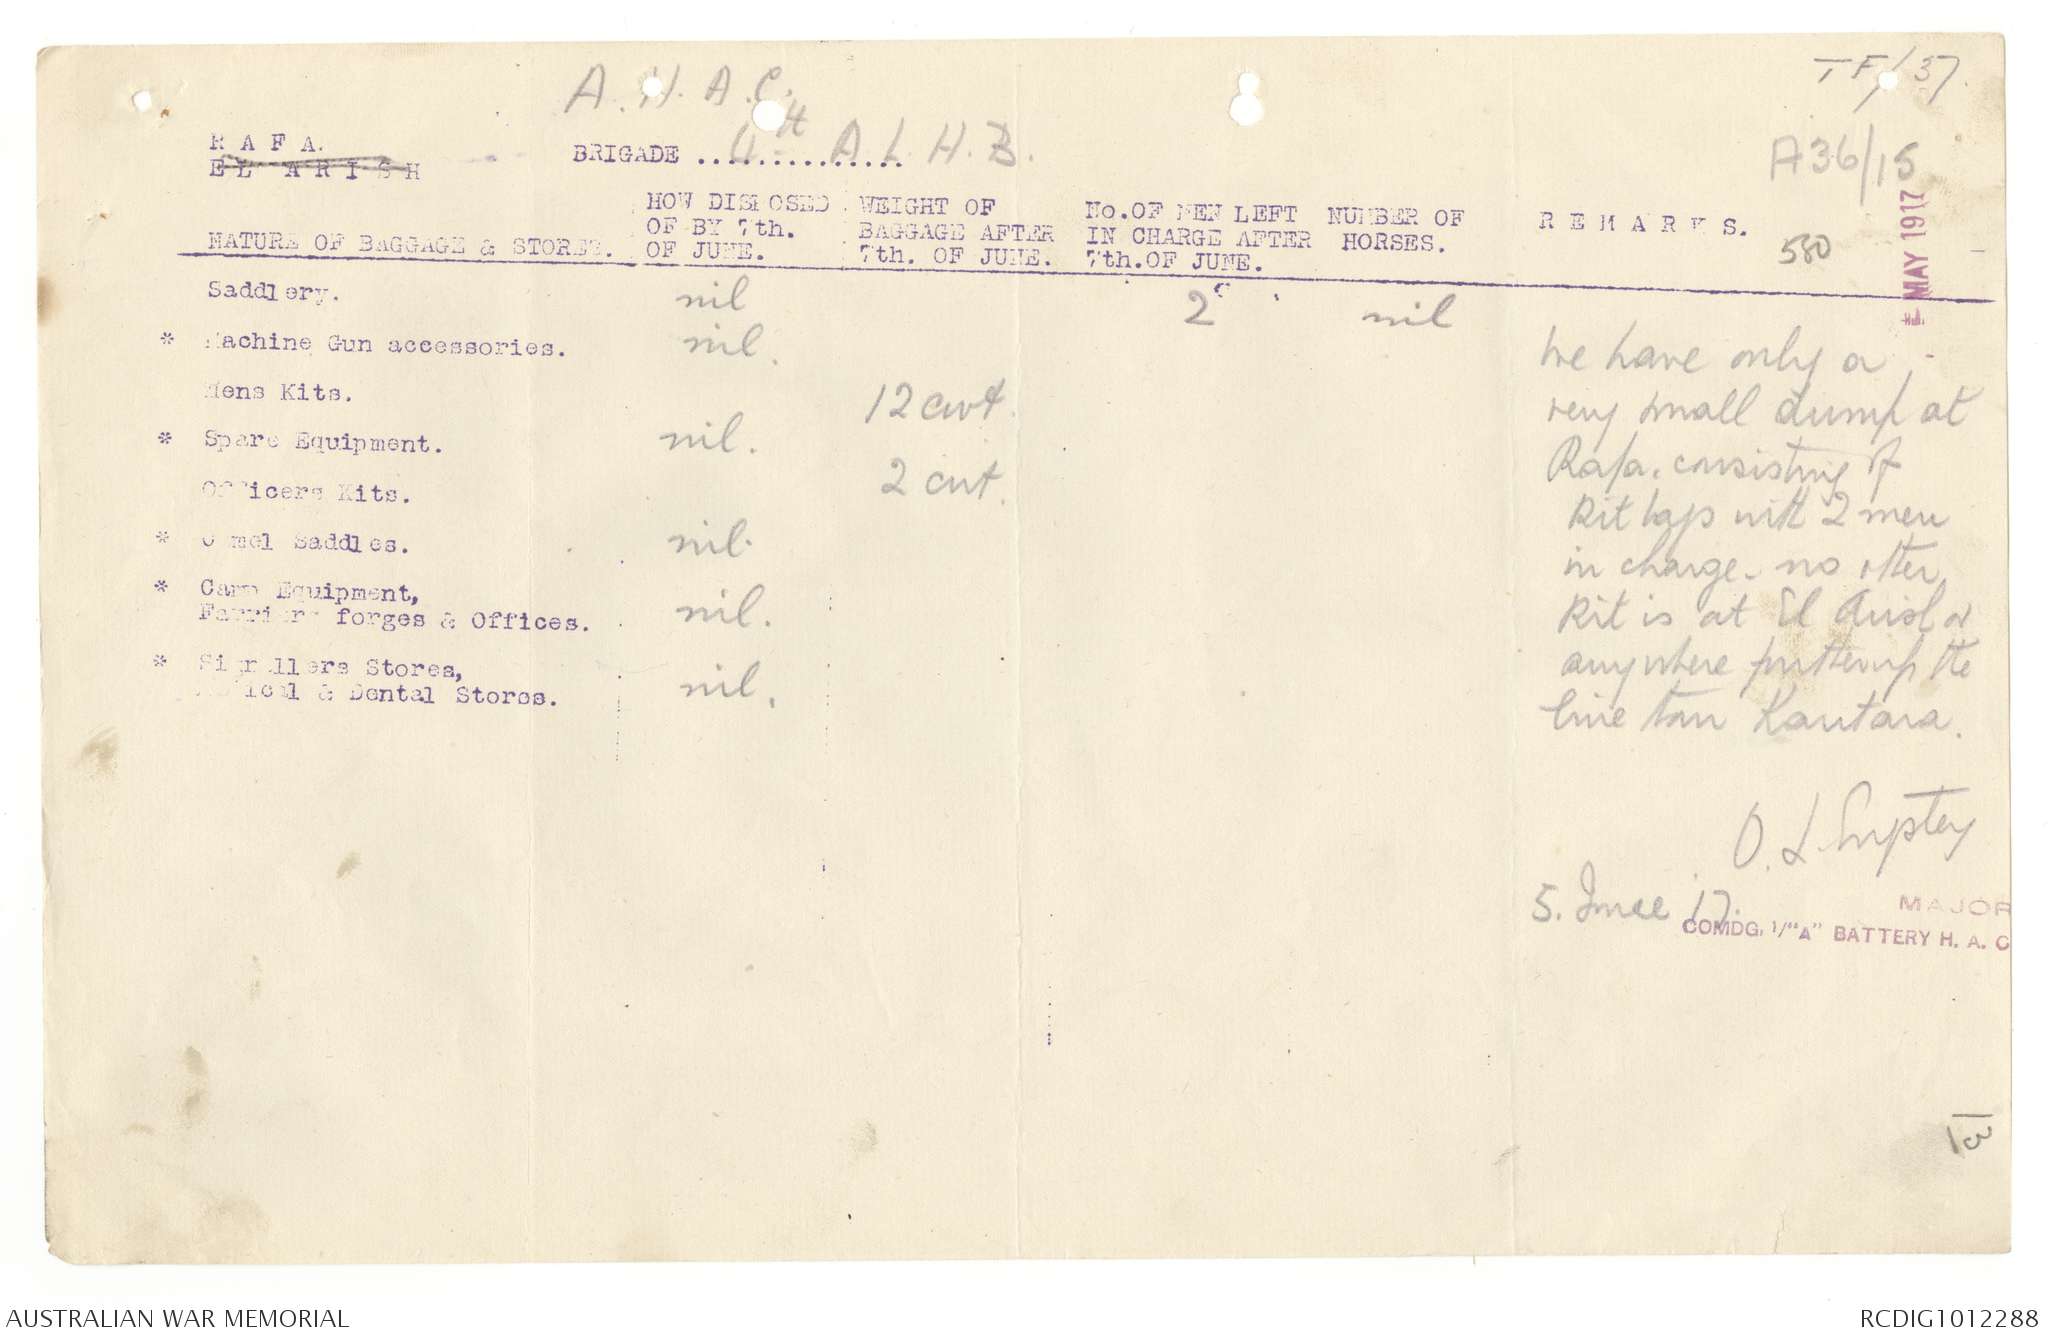 TF/37.
A. H. A. C.
A36/15
R A F A.
EL ARISH
BRIGADE ............... 4th A. L. H. B.
MAY 1917
NATURE OF BAGGAGE & STORES.
HOW DISPOSED OF BY 7th. OF JUNE.
WEIGHT OF BAGGAGE AFTER 7th. OF JUNE.
No.OF MEN LEFT IN CHARGE AFTER 7th.OF JUNE.
NUMBER OF HORSES.
R E M A R K S.
580
Saddlery. nil 2 nil
* Machine Gun accessories. nil.
Mens Kits. 12 cwt.
* Spare Equipment. nil.
Officers Kits. 2 cwt.
* Camel Saddles. nil.
* Camp Equipment,
Farriers forges & Offices. nil.
* Signallers Stores,
Medical & Dental Stores. nil.
We have only a
very small dump at
Rafa. consisting of
Kit bags with 2 men
in charge - no other
Kit is at El Arish or
anywhere further up the
line than Kantara.
5. June 17.
MAJOR
COMDG. 1/"A" BATTERY H. A. C
13
AUSTRALIAN WAR MEMORIAL
RCDIG1012288